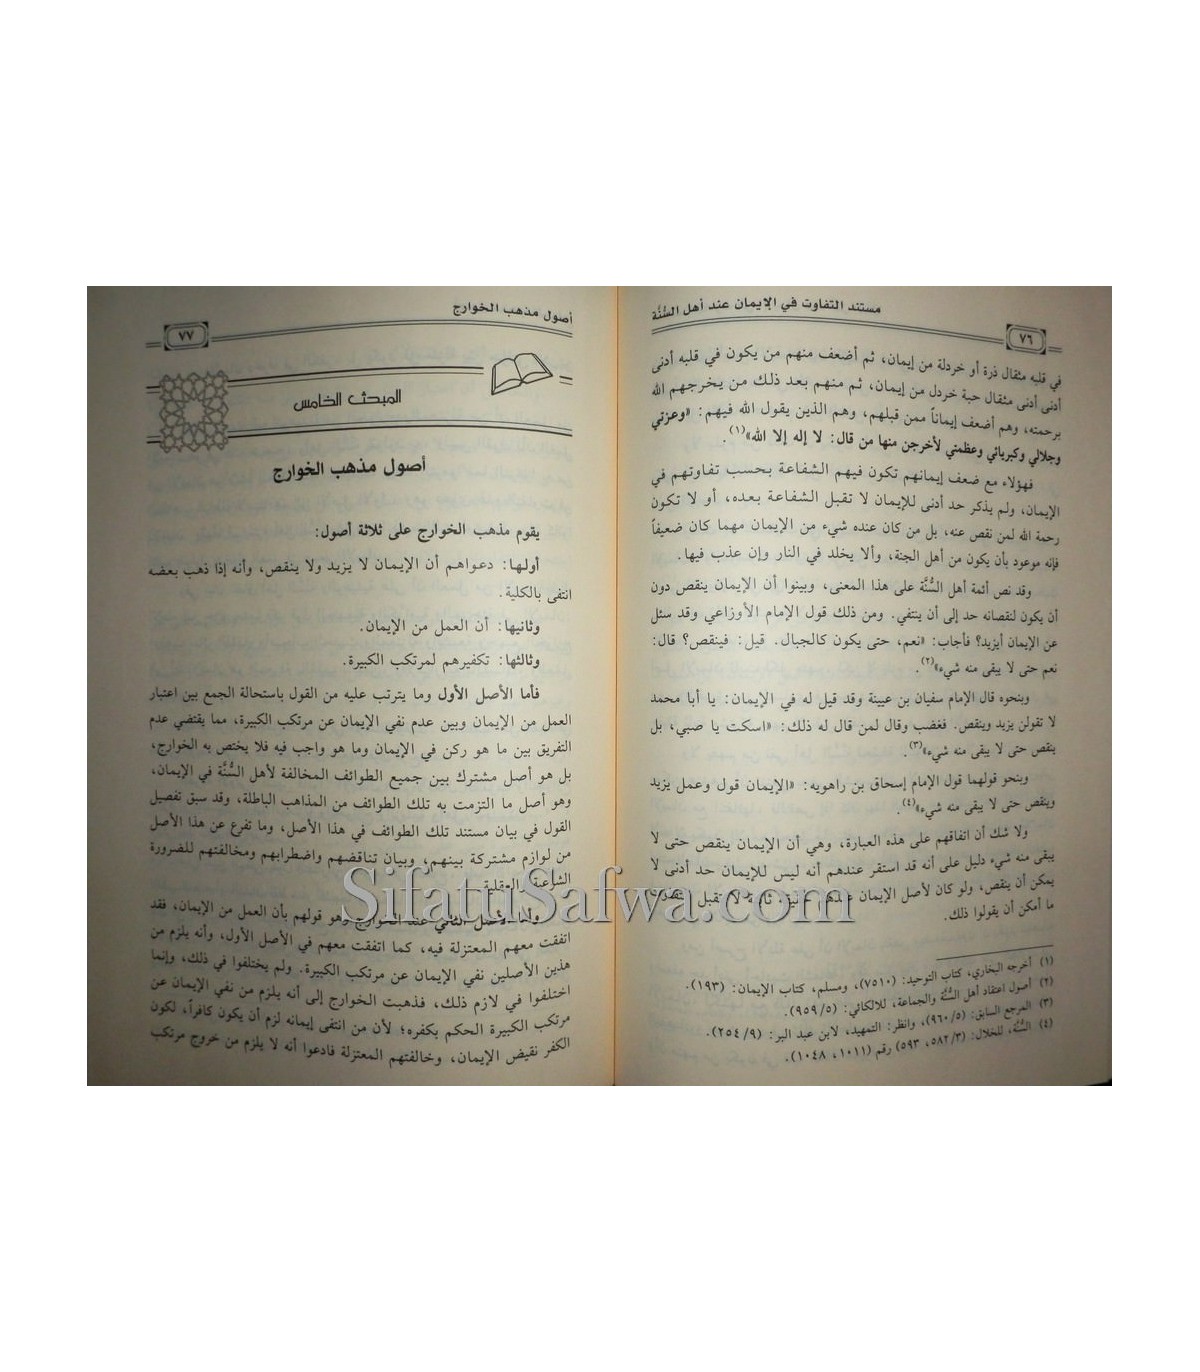 مستند التفاوت في الإيمان عند أهل السُّنَّة
٧٦
في قلبه مثقال ذرة أو خردلة من إيمان، ثم أضعف منهم من يكون في قلبه أدنى
أدنى أدنى مثقال حبة خردل من إيمان، ثم منهم بعد ذلك من يخرجهم الله
برحمته، وهم أضعف إيماناً ممن قبلهم، وهم الذين يقول الله فيهم: «وعزتي
وجلالي وكبريائي وعظمتي لأخرجن منها من قال: لا إله إلا الله»(١).
فهؤلاء مع ضعف إيمانهم تكون فيهم الشفاعة بحسب تفاوتهم في
الإيمان، ولم يذكر حد أدنى للإيمان لا تقبل الشفاعة بعده، أو لا تكون
رحمة الله لمن نقص عنه، بل من كان عنده شيء من الإيمان مهما كان ضعيفاً
فإنه موعود بأن يكون من أهل الجنة، وألا يخلد في النار وإن عذب فيها.
وقد نص أئمة أهل السُّنَّة على هذا المعنى، وبينوا أن الإيمان ينقص دون
أن يكون لنقصانه حد إلى أن ينتفي. ومن ذلك قول الإمام الأوزاعي وقد سئل
عن الإيمان أيزيد؟ فأجاب: «نعم، حتى يكون كالجبال. قيل: فينقص؟ قال:
نعم حتى لا يبقى منه شيء»(٢).
وبنحوه قال الإمام سفيان بن عيينة وقد قيل له في الإيمان: يا أبا محمد
لا تقولن يزيد وينقص. فغضب وقال لمن قال له ذلك: «اسكت يا صبي، بل
ينقص حتى لا يبقى منه شيء»(٣).
وبنحو قولهما قول الإمام إسحاق بن راهويه: «الإيمان قول وعمل يزيد
وينقص حتى لا يبقى منه شيء»(٤).
ولا شك أن اتفاقهم على هذه العبارة، وهي أن الإيمان ينقص حتى لا
يبقى منه شيء دليل على أنه قد استقر عندهم أنه ليس للإيمان حد أدنى لا
يمكن أن ينقص، ولو كان لأصل الإيمان عندهم ثابتة لا تقبل
ما أمكن أن يقولوا ذلك.
(١) أخرجه البخاري، كتاب التوحيد: (٧٥١٠)، ومسلم، كتاب الإيمان: (١٩٣).
(٢) أصول اعتقاد أهل السُّنَّة والجماعة، للالكائي: (٩٥٩/٥).
(٣) المرجع السابق: (٩٦٠/٥)، وانظر: التمهيد، لابن عبد البر: (٢٥٤/٩).
(٤) السُّنَّة، للخلال: (٥٨٢/٣، ٥٩٣) رقم (١٠١١، ١٠٤٨).
أصول مذهب الخوارج
٧٧
المبحث الخامس
أصول مذهب الخوارج
يقوم مذهب الخوارج على ثلاثة أصول:
أولها: دعواهم أن الإيمان لا يزيد ولا ينقص، وأنه إذا ذهب بعضه
انتفى بالكلية.
وثانيها: أن العمل من الإيمان.
وثالثها: تكفيرهم لمرتكب الكبيرة.
فأما الأصل الأول وما يترتب عليه من القول باستحالة الجمع بين اعتبار
العمل من الإيمان وبين عدم نفي الإيمان عن مرتكب الكبيرة، مما يقتضي عدم
التفريق بين ما هو ركن في الإيمان وما هو واجب فيه فلا يختص به الخوارج،
بل هو أصل مشترك بين جميع الطوائف المخالفة لأهل السُّنَّة في الإيمان،
وهو أصل ما التزمت به تلك الطوائف من المذاهب الباطلة، وقد سبق تفصيل
القول في بيان مستند تلك الطوائف في هذا الأصل، وما تفرع عن هذا الأصل
من لوازم مشتركة بينهم، وبيان تناقضهم واضطرابهم ومخالفتهم للضرورة
الشرعية والعقلية.
وأما الأصل الثاني عند الخوارج وهو قولهم بأن العمل من الإيمان، فقد
اتفقت معهم المعتزلة فيه، كما اتفقت معهم في الأصل الأول، وأنه يلزم من
هذين الأصلين نفي الإيمان عن مرتكب الكبيرة. ولم يختلفوا في ذلك، وإنما
اختلفوا في لازم ذلك، فذهبت الخوارج إلى أنه يلزم من نفي الإيمان عن
مرتكب الكبيرة الحكم بكفره؛ لأن من انتفى إيمانه لزم أن يكون كافراً، لكون
الكفر نقيض الإيمان، وخالفتهم المعتزلة فادعوا أنه لا يلزم من خروج مرتكب
SifatuSafwa.com